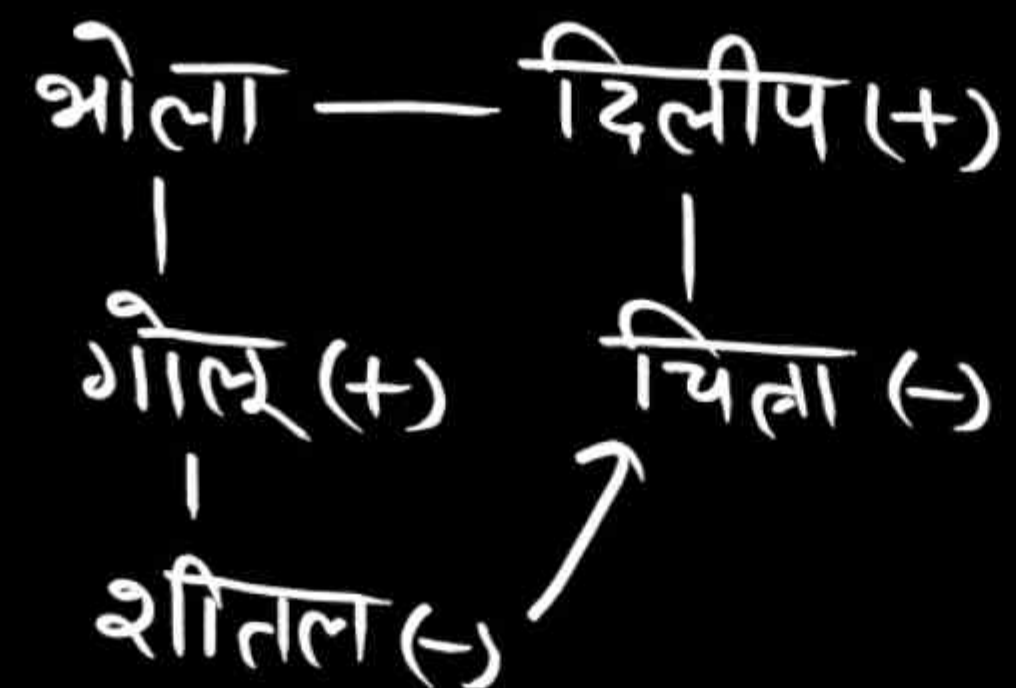 भोला — दिलीप (+)
गोलू (+) चित्रा (-)
शीतल (-)